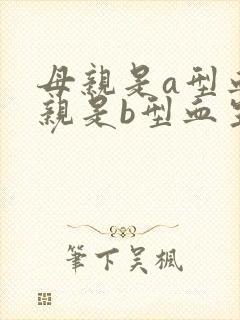 母親是a型血
親是b型血
筆下吳楓